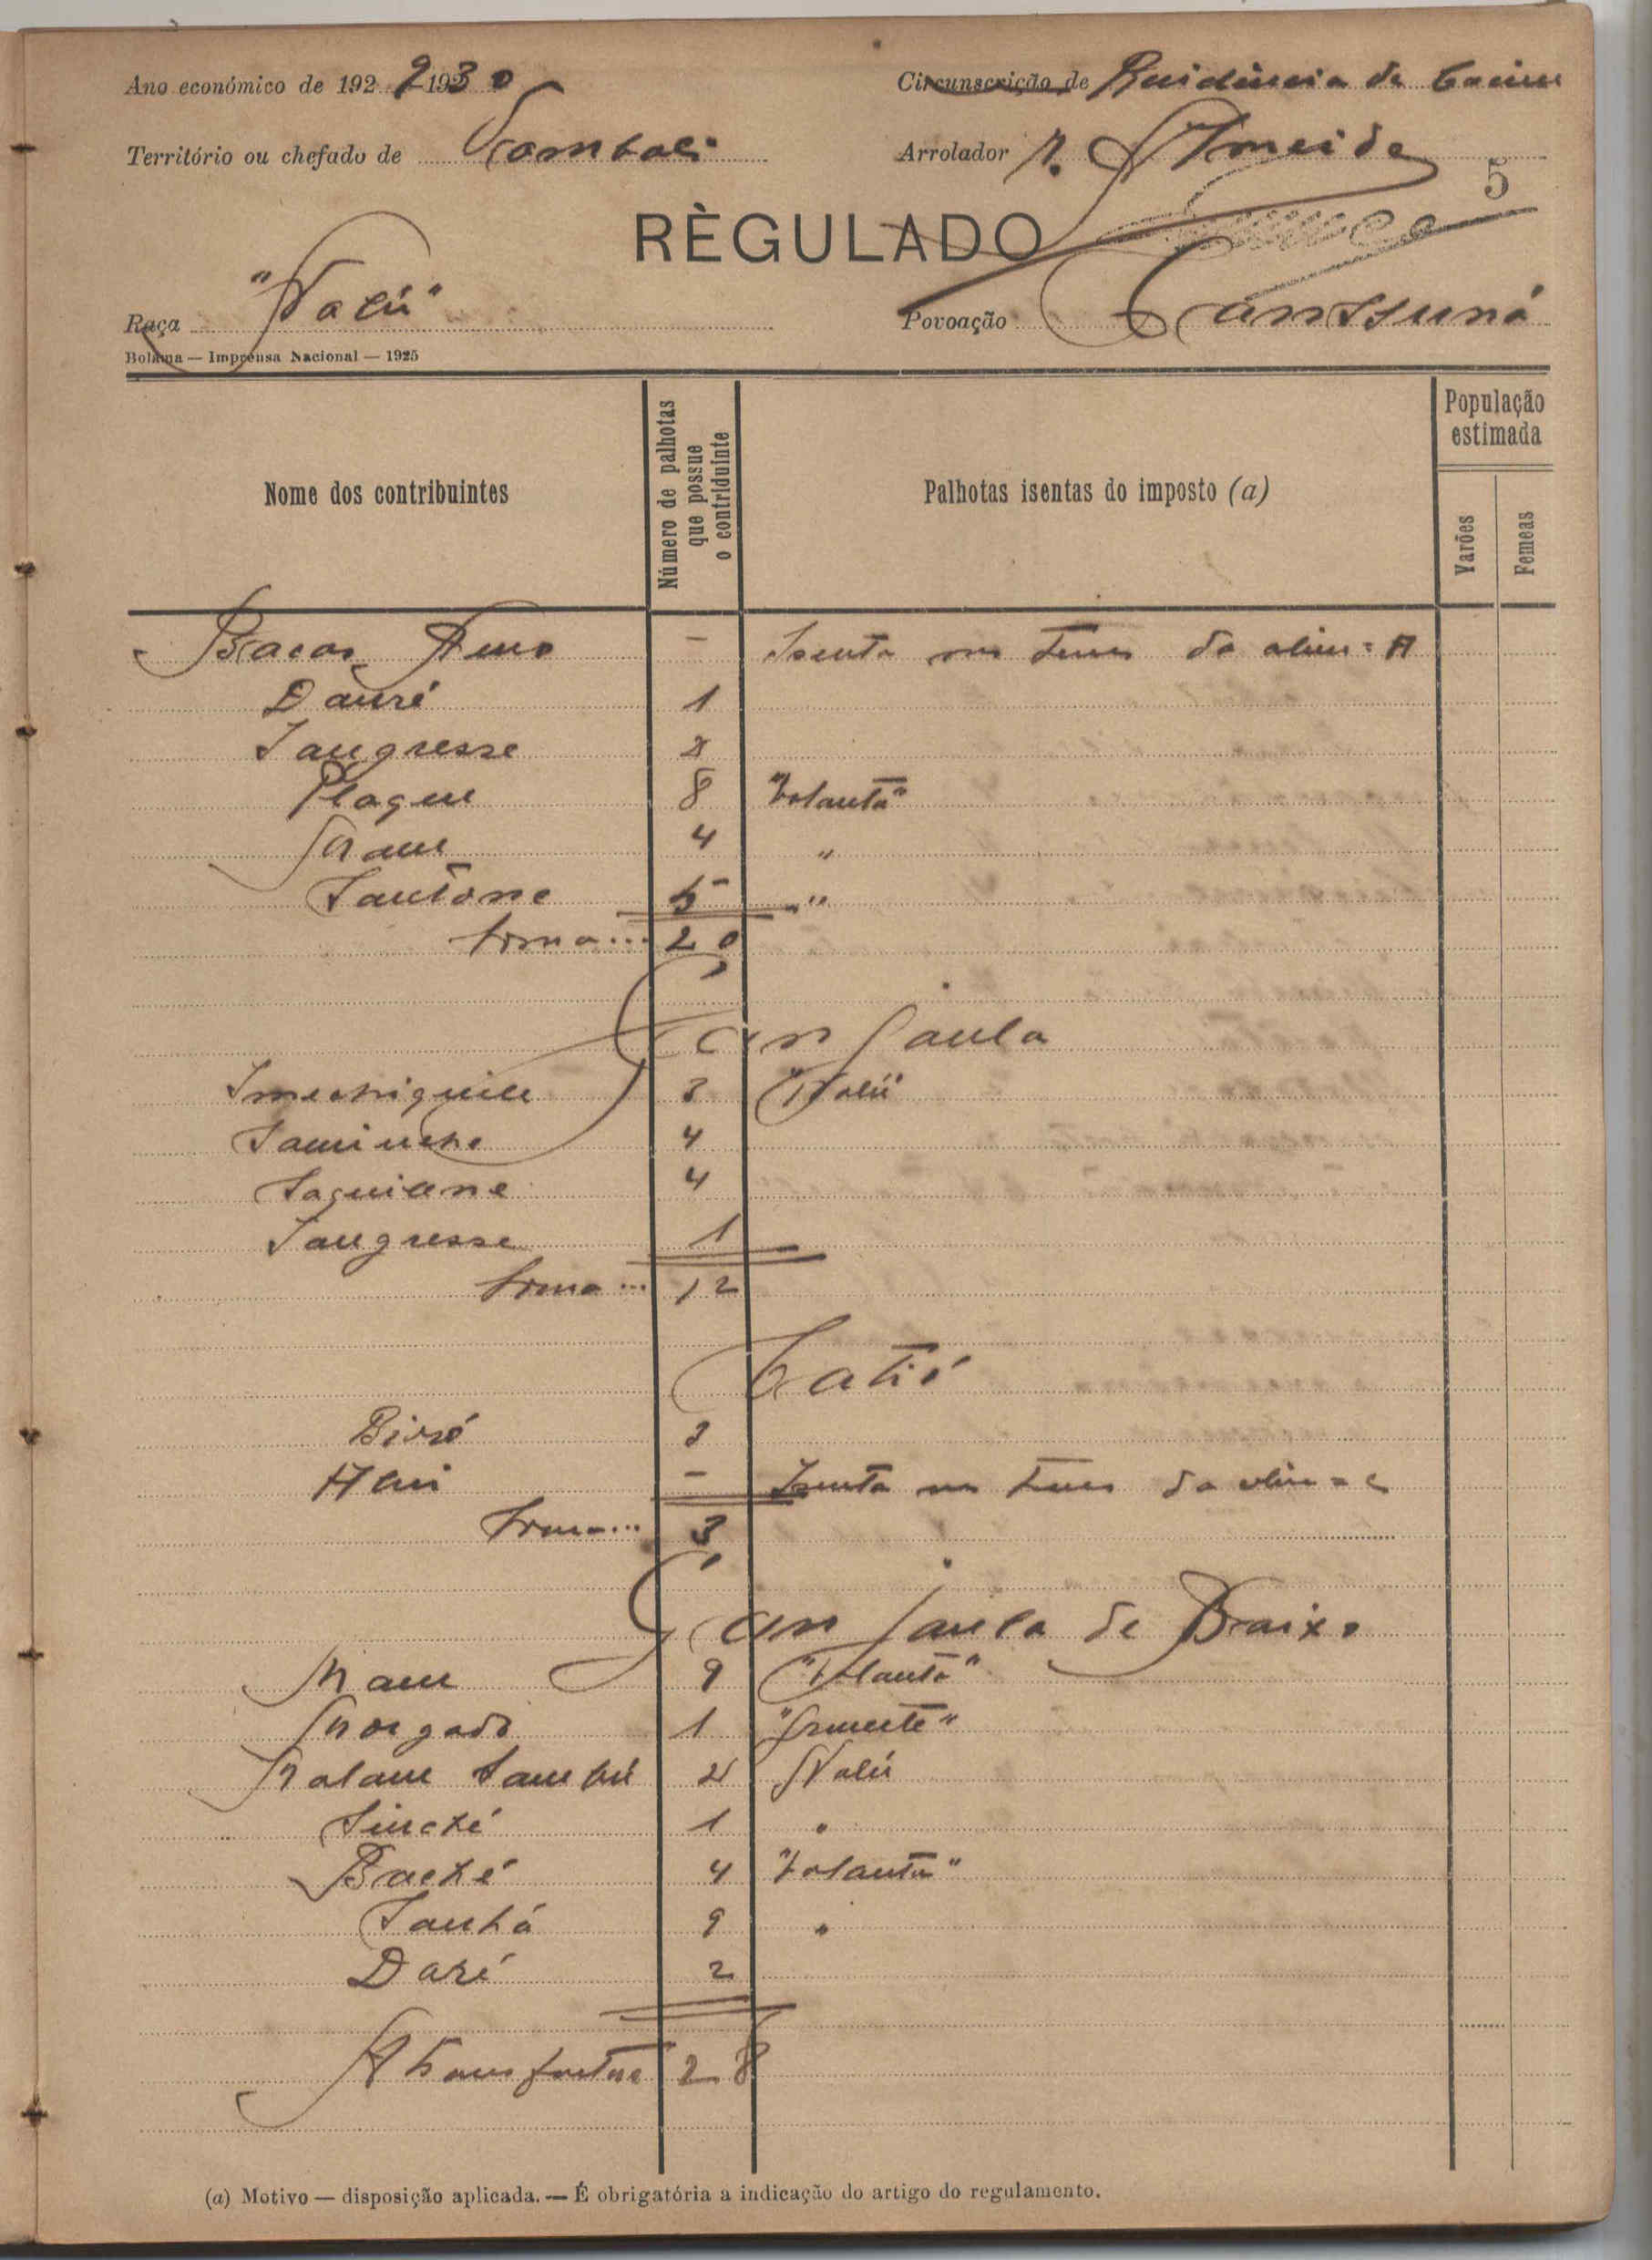 Ano económico de 1929-1930
Circunscrição de Residência de Cacine
Território ou chefado de Tombali
Arrolador A. Almeida
5
RÈGULADO
Raça "Nalú"
Povoação Canssuná
Bolama — Imprensa Nacional — 1925
Nome dos contribuintes
Número de palhotas que possue o contriduinte
Palhotas isentas do imposto (a)
População estimada
Varões
Femeas
Bacar - Isenta nos termos da alin = A
Dauré 1
Tangresse 2
Plaque 8 "Balanta"
Mam 4 "
Santone 5 "
Soma... 20
Can Jaula
3 "Nalú"
4
Saguiane 4
Tangresse 1
Soma... 12
Catió
Birré 3
- Isenta nos termos da alin = C
Soma... 3
Can Jaula de Baixo
Mam 9 "Balanta"
Morgado 1 "Grumete"
Malam Sambú 2 Nalú
Sinché 1 "
Baché 4 "Balanta"
Sanhá 9 "
Daré 2
A transportar 28
(a) Motivo — disposição aplicada. — É obrigatória a indicação do artigo do regulamento.